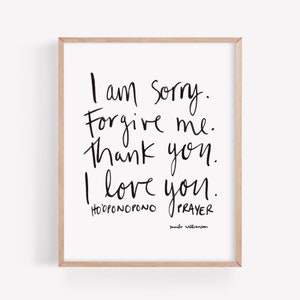 I am sorry.
Forgive me.
Thank you.
I love you.
HO'OPONOPONO PRAYER